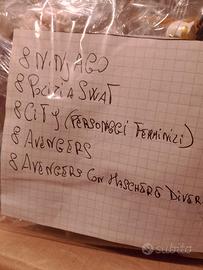 8 NINJAGO
8 POLIZIA SWAT
8 CITY (PERSONGGI FEMMINILI)
8 AVENGERS
8 AVENGERS CON MASCHERE DIVER
subito